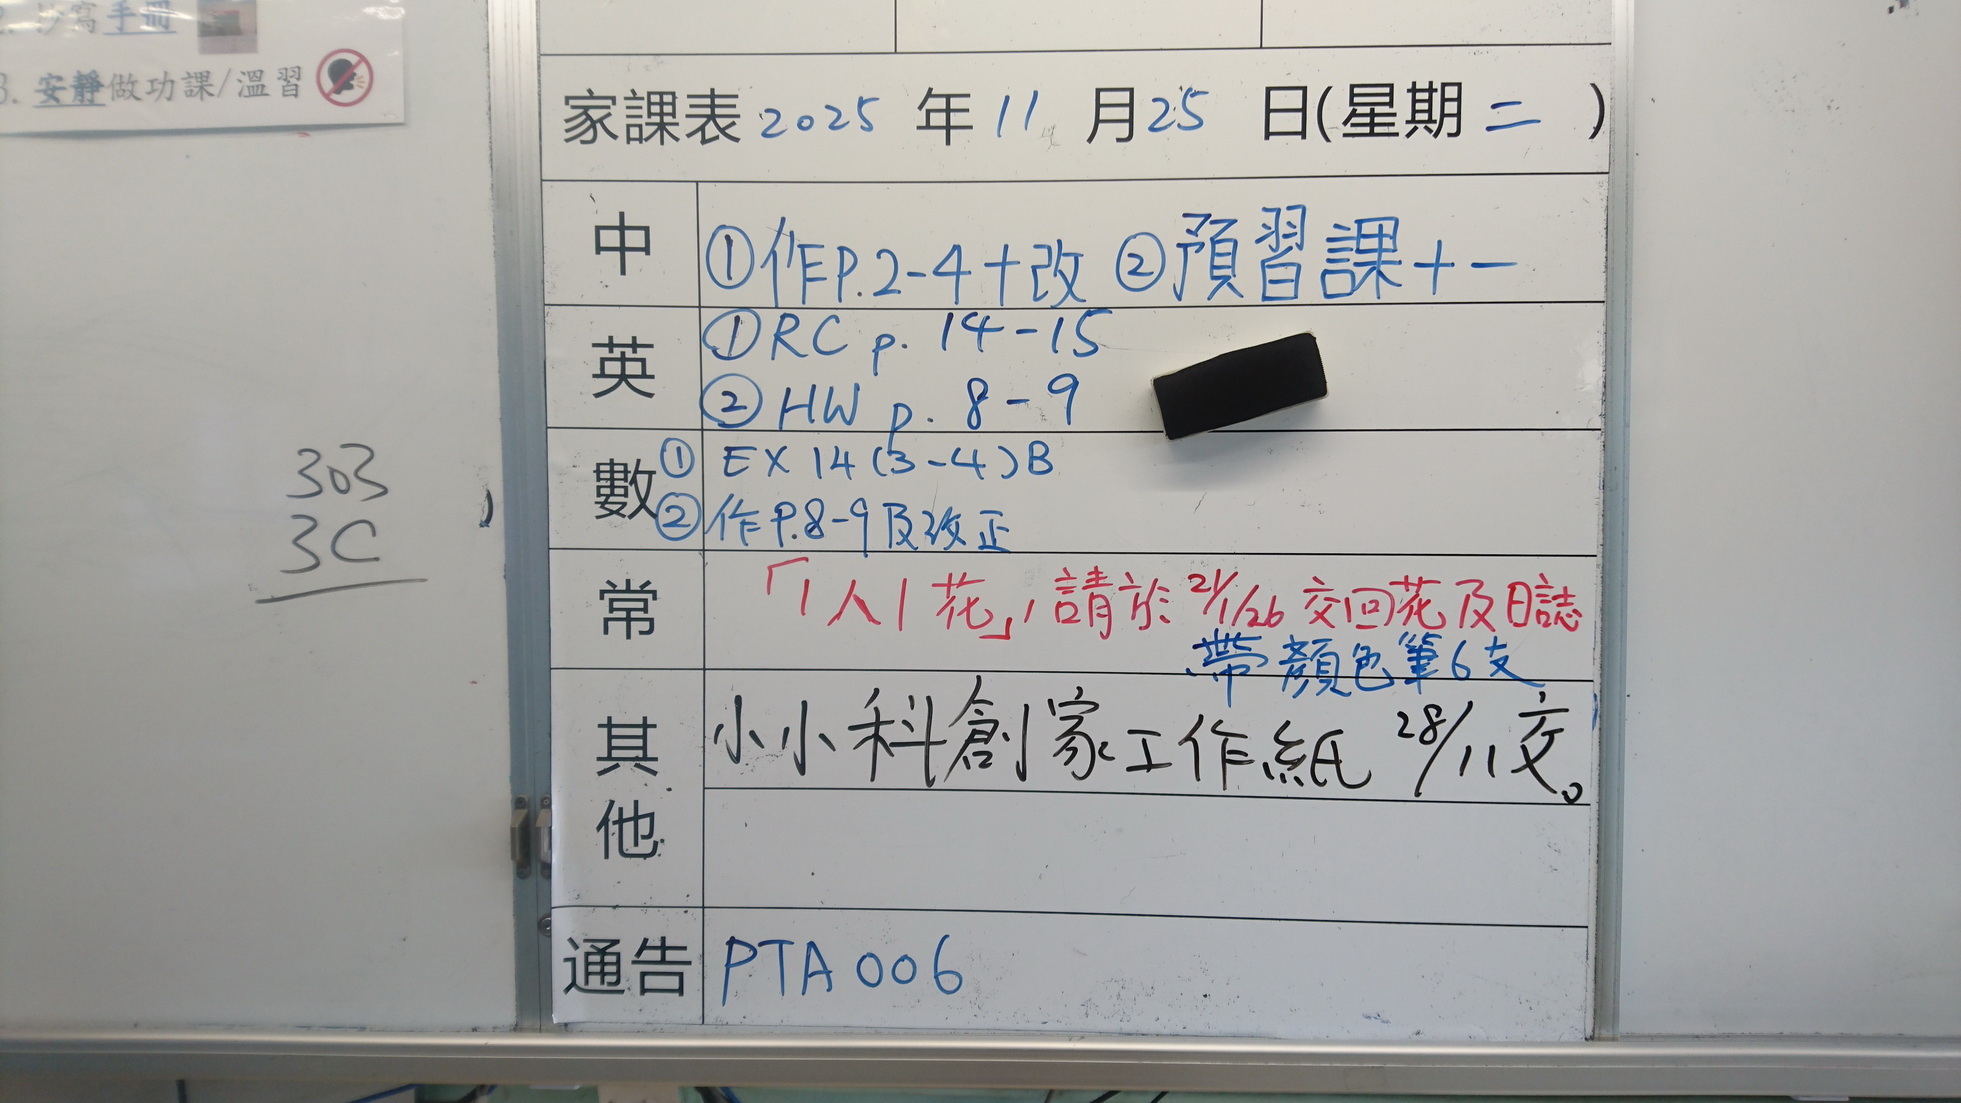 抄寫手冊
3. 安靜做功課/溫習
家課表 2025 年 11 月 25 日(星期二)
中
①作P.2-4+改 ②預習課十一
英
①RC p. 14-15
②HW p. 8-9
數
① EX 14 (3-4) B
②作P.8-9及改正
常
「1人1花」,請於21/1/26交回花及日誌
帶顏色筆6支
其他
小小科創家工作紙 28/11交。
通告
PTA 006
303
3C